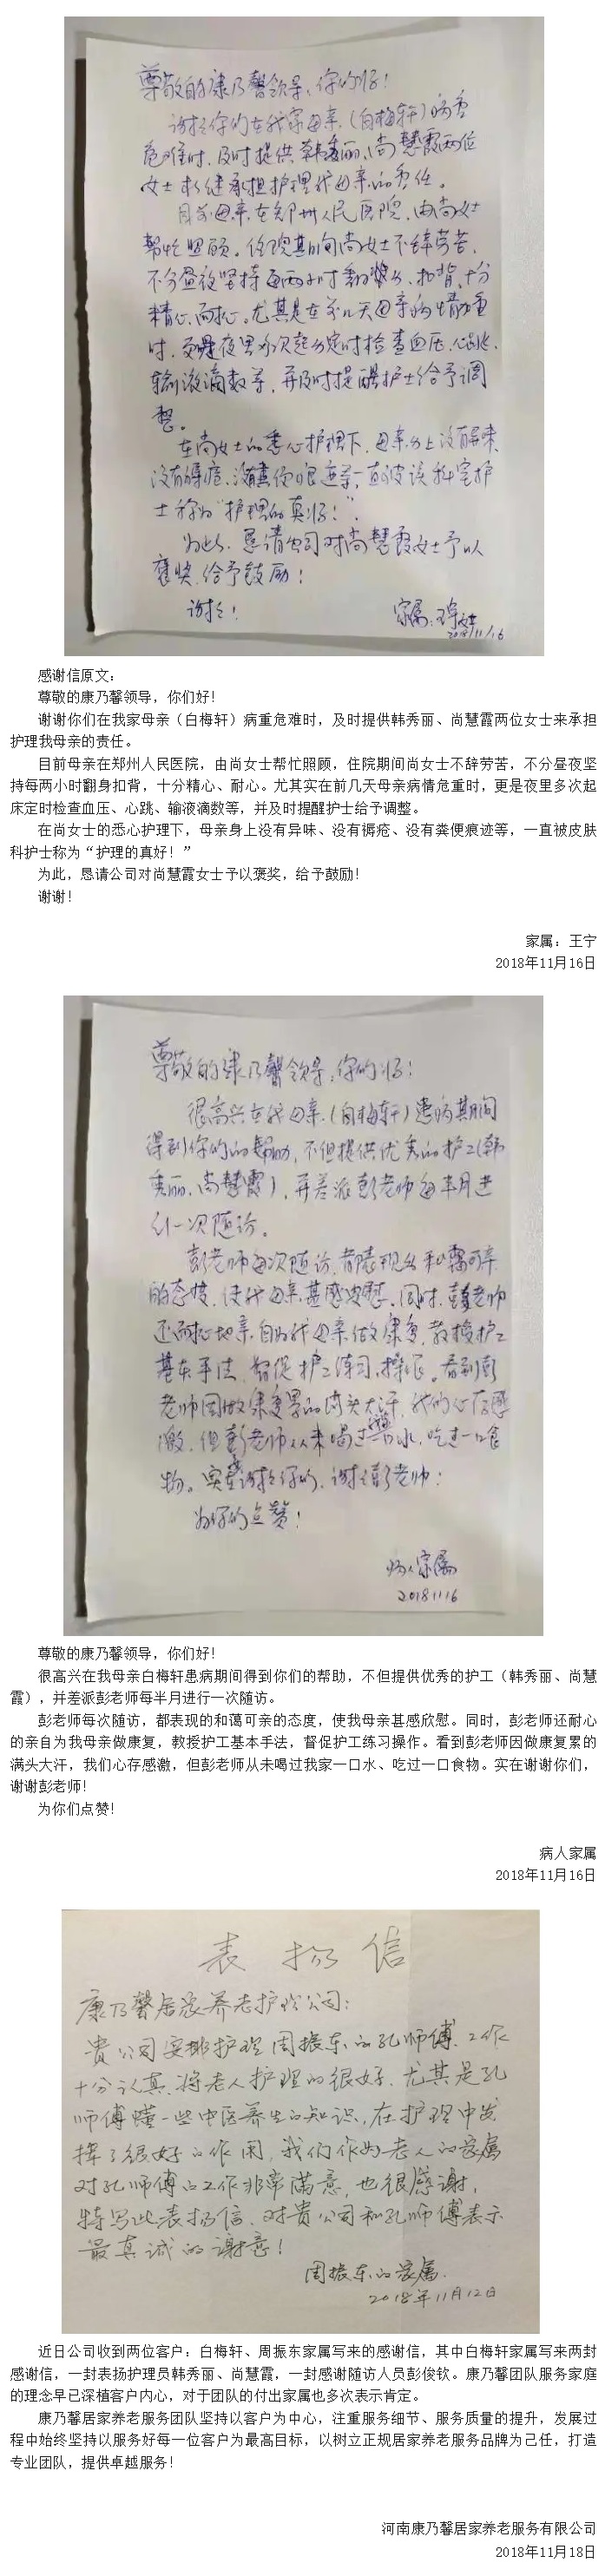 尊敬的康乃馨领导，你们好！
谢谢你们在我家母亲（白梅轩）病重
危难时，及时提供韩秀丽、尚慧霞两位
女士来继承担护理我母亲的责任。
目前母亲在郑州人民医院，由尚女士
帮忙照顾。住院期间尚女士不辞劳苦，
不分昼夜坚持每两小时翻身、扣背，十分
精心、耐心。尤其是在前几天母亲病情危重
时，更是夜里多次起身定时检查血压、心跳、
输液滴数等，并及时提醒护士给予调
整。
在尚女士的悉心护理下，母亲身上没有异味、
没有褥疮、没有粪便痕迹等，一直被该科室护
士称为“护理的真好！”。
为此，恳请公司对尚慧霞女士予以
褒奖，给予鼓励！
谢谢！
家属：王宁
2018/11/16
感谢信原文：
尊敬的康乃馨领导，你们好！
谢谢你们在我家母亲（白梅轩）病重危难时，及时提供韩秀丽、尚慧霞两位女士来承担
护理我母亲的责任。
目前母亲在郑州人民医院，由尚女士帮忙照顾，住院期间尚女士不辞劳苦，不分昼夜坚
持每两小时翻身扣背，十分精心、耐心。尤其实在前几天母亲病情危重时，更是夜里多次起
床定时检查血压、心跳、输液滴数等，并及时提醒护士给予调整。
在尚女士的悉心护理下，母亲身上没有异味、没有褥疮、没有粪便痕迹等，一直被皮肤
科护士称为“护理的真好！”
为此，恳请公司对尚慧霞女士予以褒奖，给予鼓励！
谢谢！
家属：王宁
2018年11月16日
尊敬的康乃馨领导，你们好！
很高兴在我母亲（白梅轩）患病期间
得到你们的帮助，不但提供优秀的护工（韩
秀丽、尚慧霞），并差派彭老师每半月进
行一次随访。
彭老师每次随访，都表现出和蔼可亲
的态度，使我母亲甚感安慰。同时，彭老师
还耐心地亲自为我母亲做康复，教授护工
基本手法，督促护工练习、操作。看到彭
老师因做康复累的满头大汗，我们心存感
激，但彭老师从未喝过我家一口水，吃过一口食
物。实在谢谢你们，谢谢彭老师！
为你们点赞！
病人家属
20181116
尊敬的康乃馨领导，你们好！
很高兴在我母亲白梅轩患病期间得到你们的帮助，不但提供优秀的护工（韩秀丽、尚慧
霞），并差派彭老师每半月进行一次随访。
彭老师每次随访，都表现的和蔼可亲的态度，使我母亲甚感欣慰。同时，彭老师还耐心
的亲自为我母亲做康复，教授护工基本手法，督促护工练习操作。看到彭老师因做康复累的
满头大汗，我们心存感激，但彭老师从未喝过我家一口水、吃过一口食物。实在谢谢你们，
谢谢彭老师！
为你们点赞！
病人家属
2018年11月16日
表扬信
康乃馨居家养老护理公司：
贵公司安排护理周振东的孔师傅，工作
十分认真，将老人护理的很好，尤其是孔
师傅懂一些中医养生的知识，在护理中发
挥了很好的作用，我们作为老人的家属
对孔师傅的工作非常满意，也很感谢，
特写此表扬信，对贵公司和孔师傅表示
最真诚的谢意！
周振东的家属
2018年11月12日
近日公司收到两位客户：白梅轩、周振东家属写来的感谢信，其中白梅轩家属写来两封
感谢信，一封表扬护理员韩秀丽、尚慧霞，一封感谢随访人员彭俊钦。康乃馨团队服务家庭
的理念早已深植客户内心，对于团队的付出家属也多次表示肯定。
康乃馨居家养老服务团队坚持以客户为中心，注重服务细节、服务质量的提升，发展过
程中始终坚持以服务好每一位客户为最高目标，以树立正规居家养老服务品牌为己任，打造
专业团队，提供卓越服务！
河南康乃馨居家养老服务有限公司
2018年11月18日